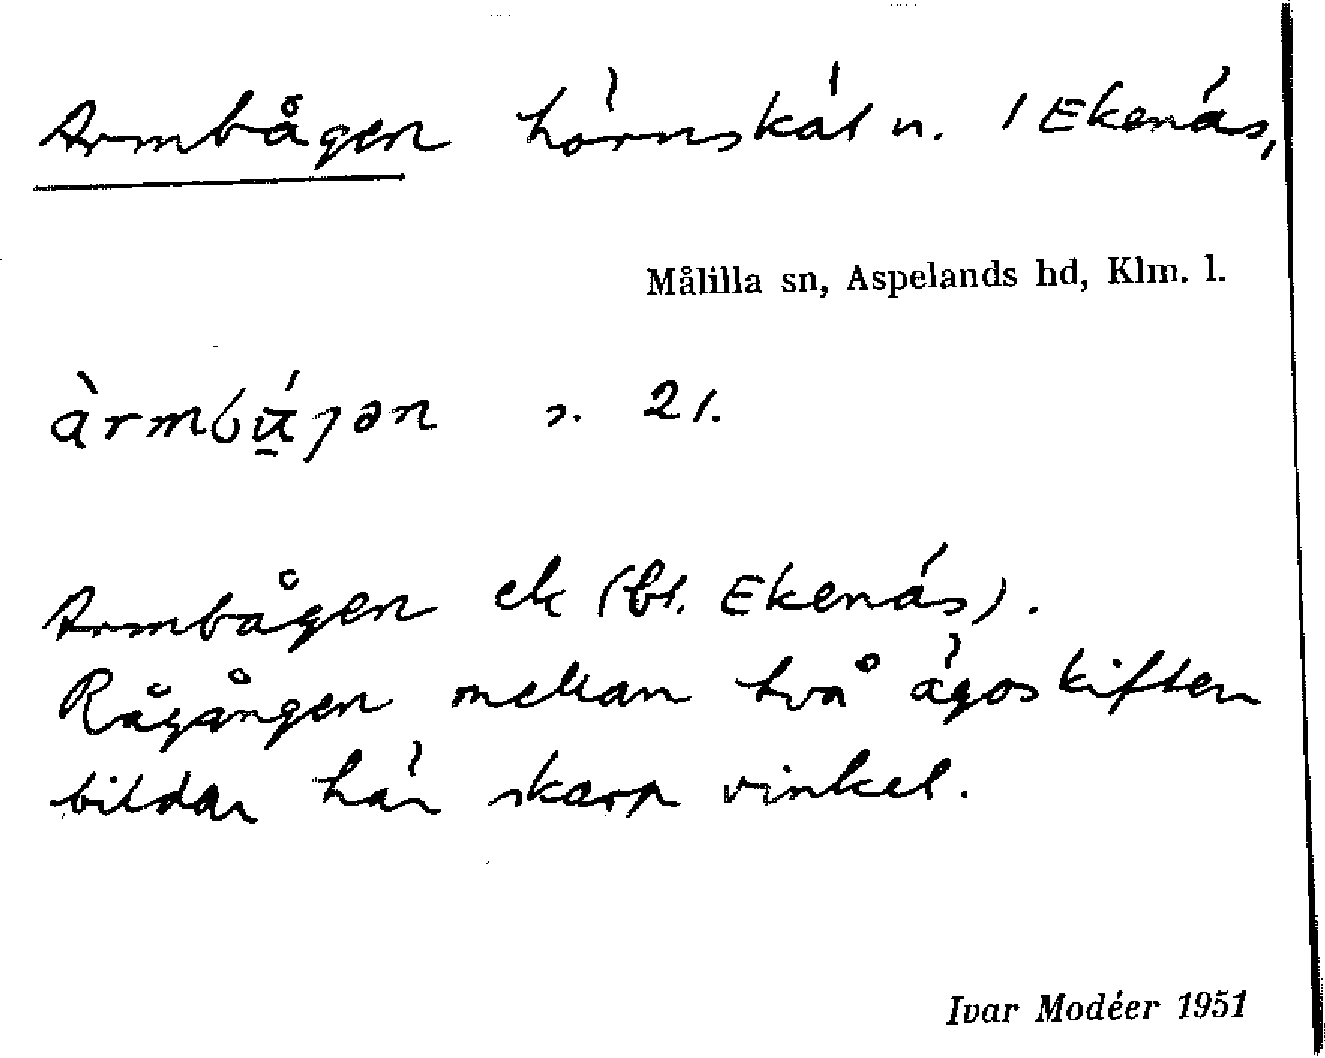 Armbågen hörnskäl n. / Ekenäs,
Målilla sn, Aspelands hd, Klm. l.
s. 21.
Armbågen ek (bl. Ekenäs).
Rågången mellan två ägoskiften
bildar här skarp vinkel.
Ivar Modéer 1951